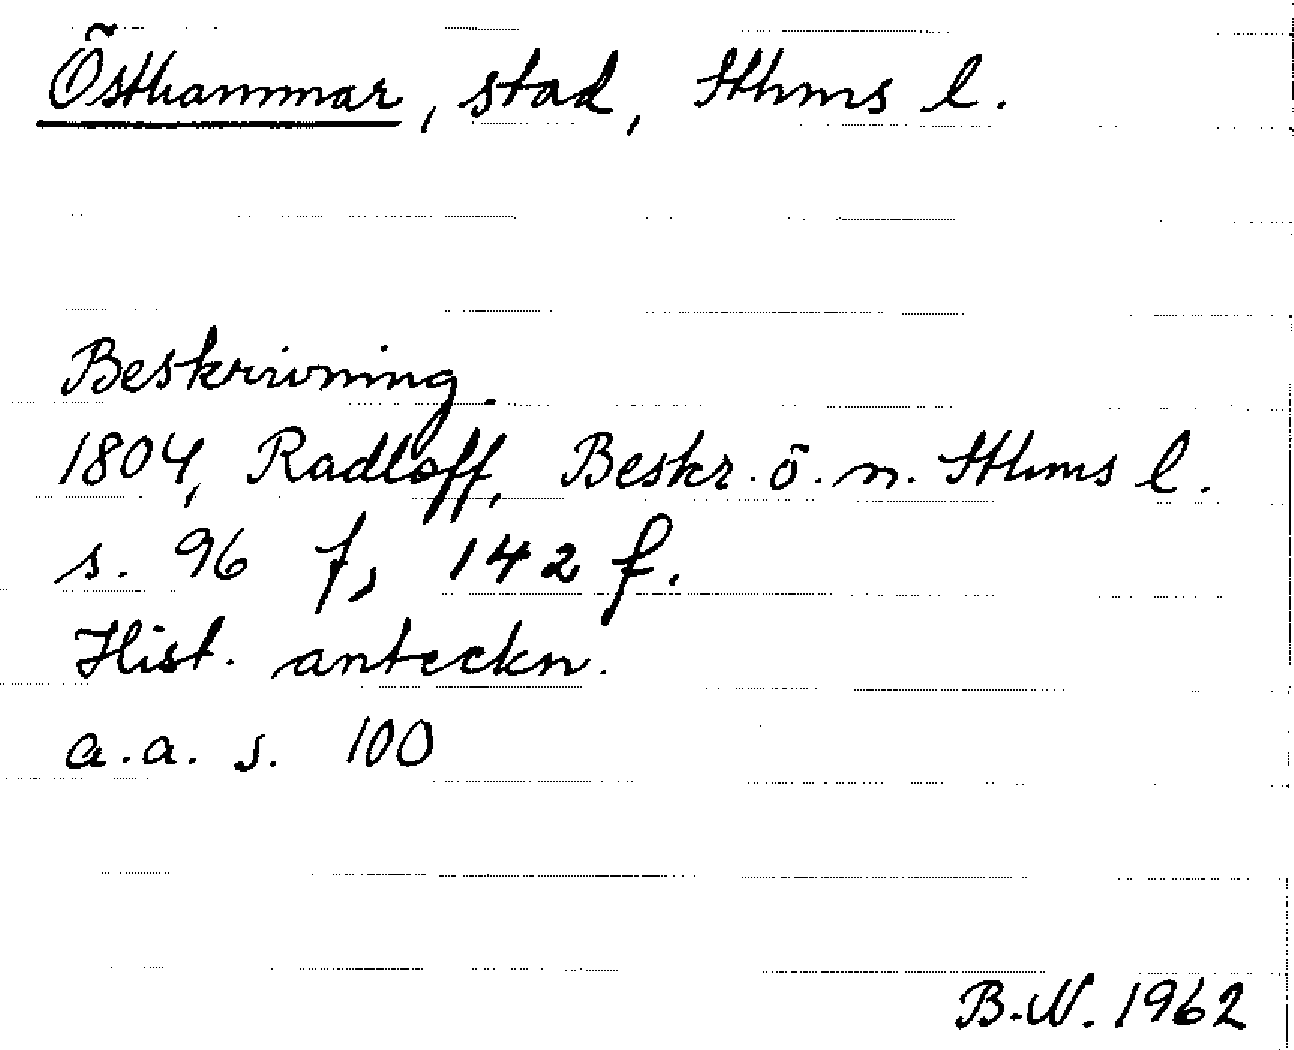 Östhammar, stad, Sthms l.
Beskrivning.
1804, Radloff, Beskr. ö. n. Sthms l.
s. 96 f, 142 f.
Hist. anteckn.
a.a. s. 100
B.N. 1962